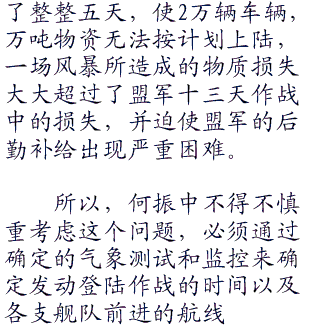 了整整五天，使2万辆车辆，
万吨物资无法按计划上陆，
一场风暴所造成的物质损失
大大超过了盟军十三天作战
中的损失，并迫使盟军的后
勤补给出现严重困难。
所以，何振中不得不慎
重考虑这个问题，必须通过
确定的气象测试和监控来确
定发动登陆作战的时间以及
各支舰队前进的航线